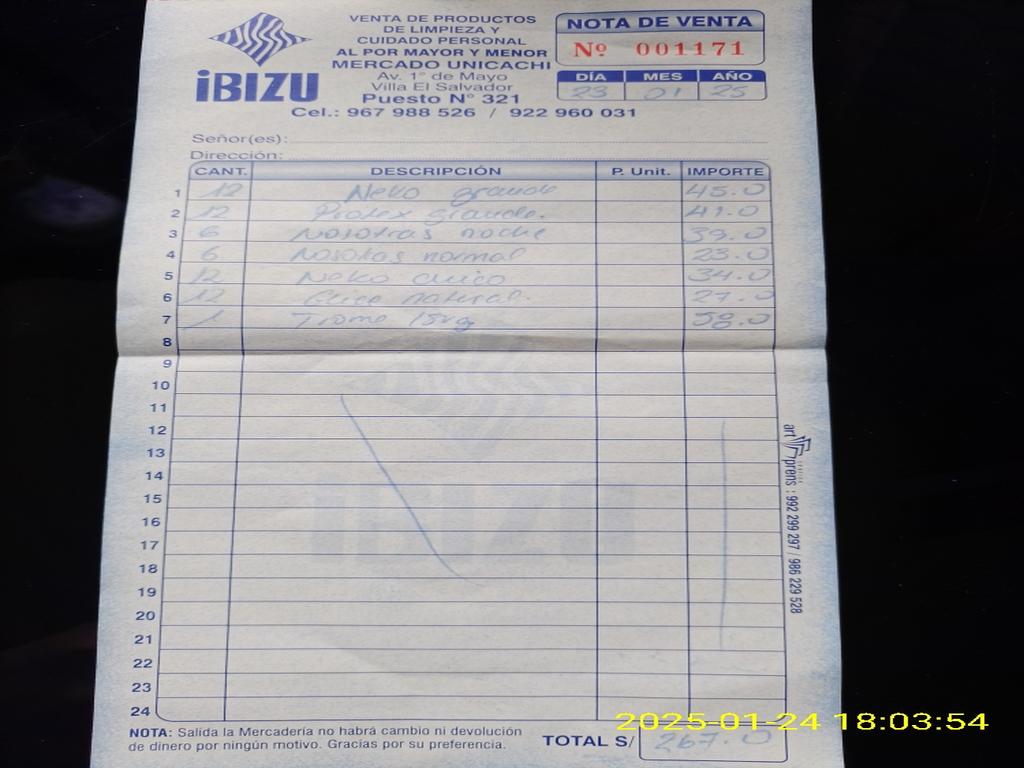 VENTA DE PRODUCTOS
DE LIMPIEZA Y
CUIDADO PERSONAL
AL POR MAYOR Y MENOR
MERCADO UNICACHI
Av. 1° de Mayo
Villa El Salvador
Puesto N° 321
iBIZU
Cel.: 967 988 526 / 922 960 031
NOTA DE VENTA
Nº 001171
DÍA MES AÑO
23 01 25
Señor(es):
Dirección:
CANT. DESCRIPCIÓN P. Unit. IMPORTE
1 12 Neko grande 45.0
2 12 Protex grande. 41.0
3 6 Nosotras noche 39.0
4 6 Nosotras normal 23.0
5 12 Neko chico 34.0
6 12 natural. 27.0
7 1 Trome 15kg 58.0
8
9
10
11
12
13
14
15
16
17
18
19
20
21
22
23
24
iBIZU
art prens : 992 299 297 / 986 229 528
NOTA: Salida la Mercadería no habrá cambio ni devolución
de dinero por ningún motivo. Gracias por su preferencia.
TOTAL S/ 267.0
2025-01-24 18:03:54